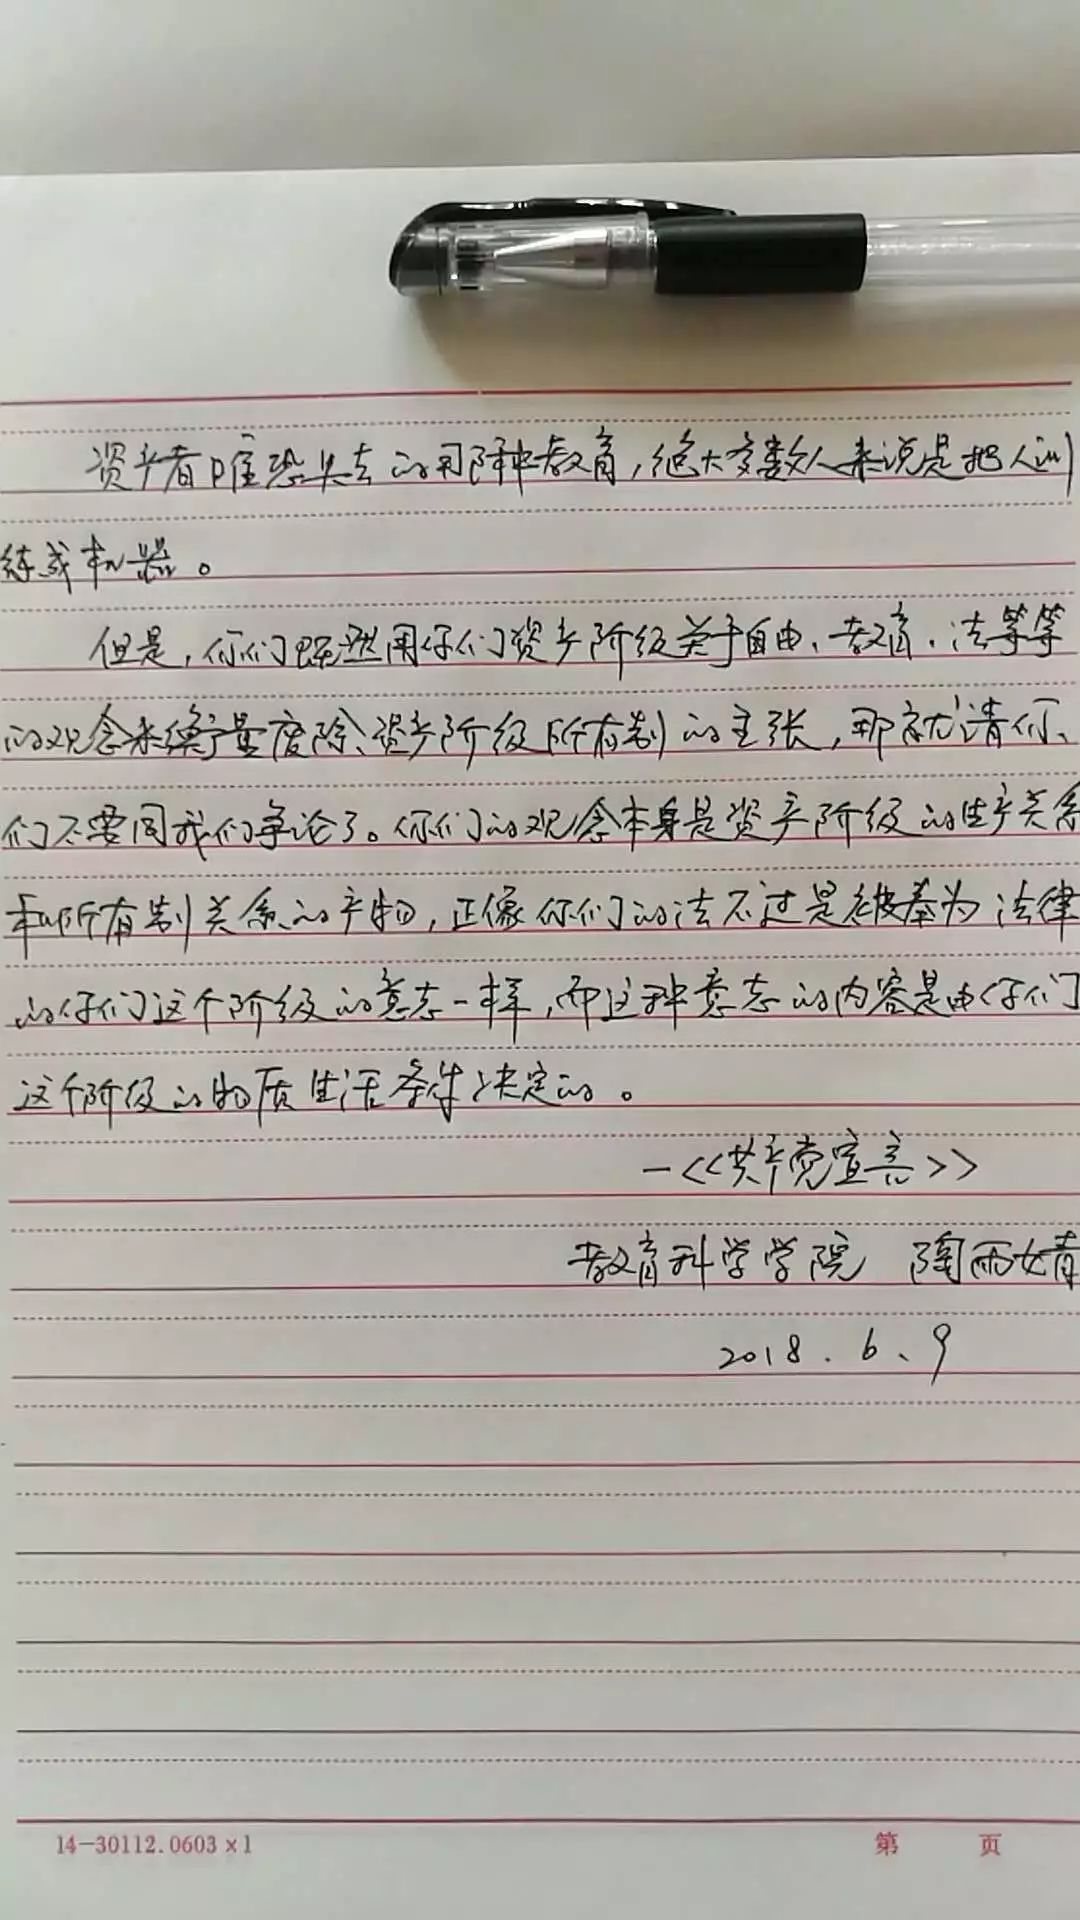 资产者唯恐失去的那种教育，绝大多数人来说是把人训
练成机器。
但是，你们既然用你们资产阶级关于自由、教育、法等等
的观念来衡量废除资产阶级所有制的主张，那就请你
们不要同我们争论了。你们的观念本身是资产阶级的生产关系
和所有制关系的产物，正像你们的法不过是被奉为法律
的你们这个阶级的意志一样，而这种意志的内容是由你们
这个阶级的物质生活条件决定的。
—<<共产党宣言>>
教育科学学院 陶雨婧
2018.6、9
14-30112.0603×1 第 页